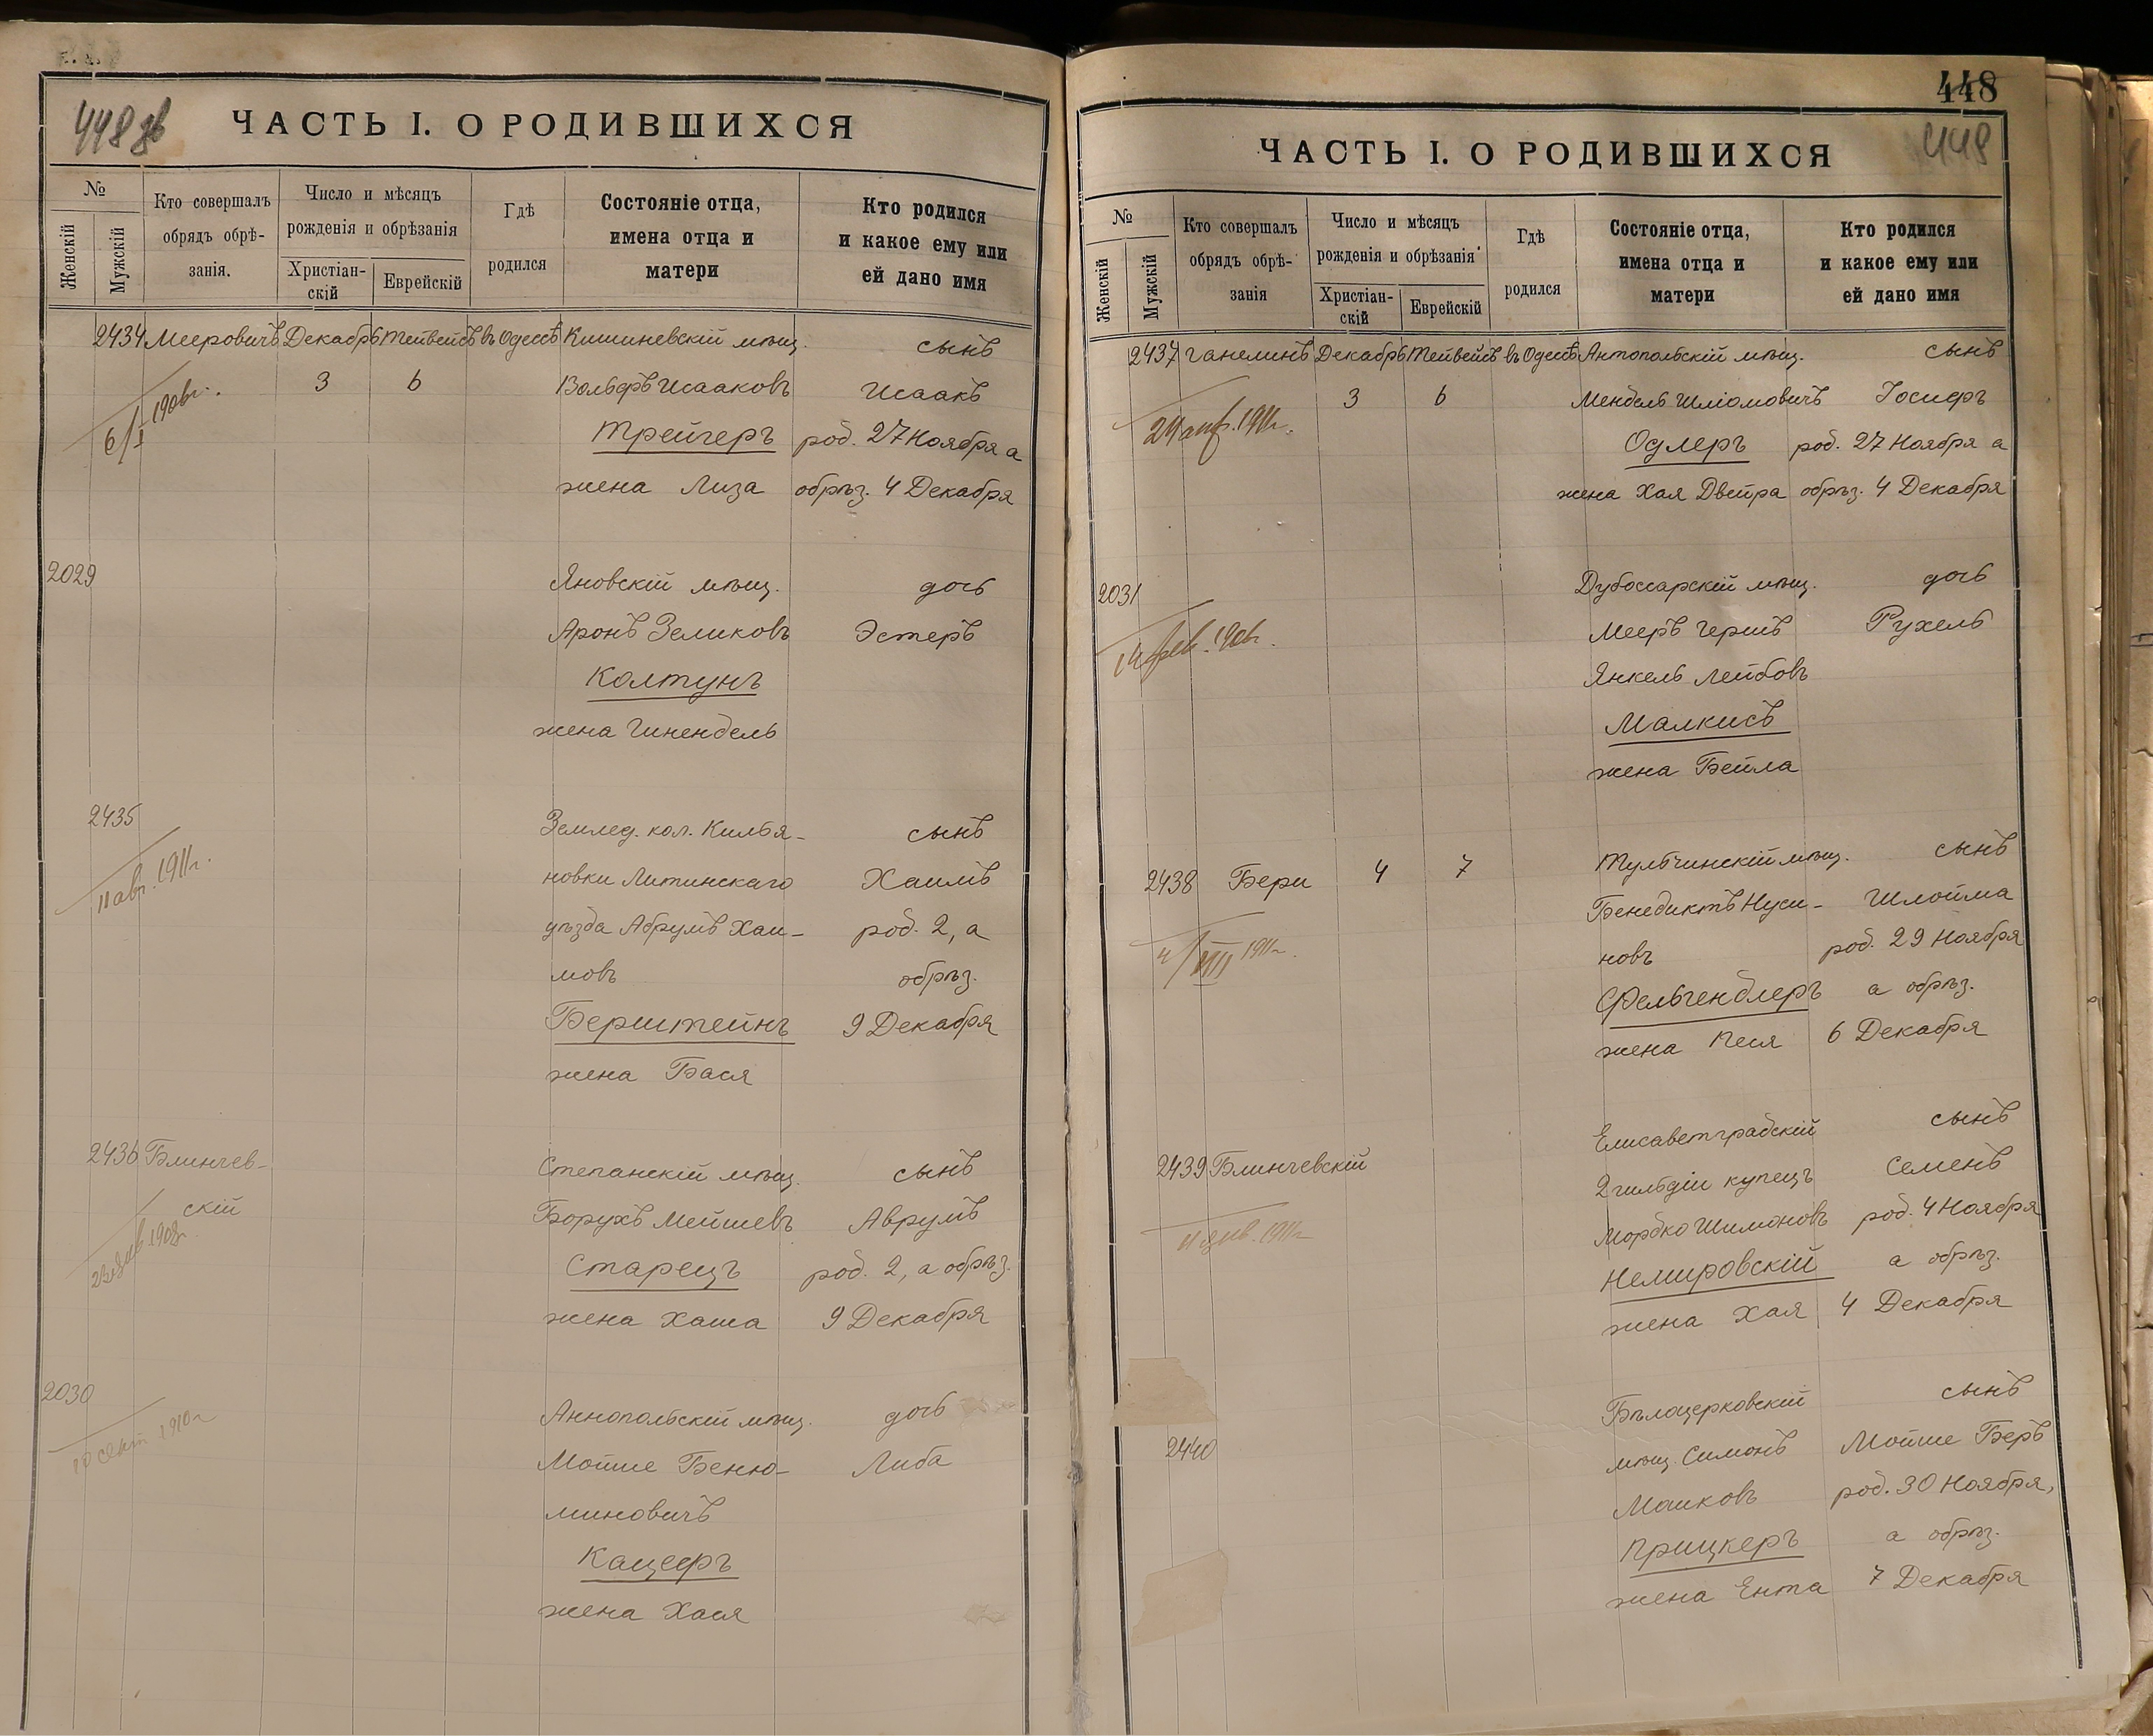 448 об
ЧАСТЬ I. О РОДИВШИХСЯ
№
Женскій
Мужскій
Кто совершалъ
обрядъ обрѣ-
занія.
Число и мѣсяцъ
рожденія и обрѣзанія
Христіан-
скій
Еврейскій
Гдѣ
родился
Состояніе отца,
имена отца и
матери
Кто родился
и какое ему или
ей дано имя
2434 Мееровичъ Декабрь Тейвейсъ въ Одессѣ Кишиневскій мѣщ. сынъ
3 6 Вольфъ Исааковъ Исаакъ
6/I 1906г.
Трейгеръ род. 27 Ноября а
жена Лиза обрѣз. 4 Декабря
2029 Яновскій мѣщ. дочь
Аронъ Зеликовъ Эстеръ
Колтунъ
жена Гинендель
2435 Землед. кол. Килья- сынъ
11 авг. 1911г. новки Литинскаго Хаимъ
уѣзда Абрумъ Хаи- род. 2, а
мовъ обрѣз.
Берштейнъ 9 Декабря
жена Бася
2436 Блинчев- Степанскій мѣщ. сынъ
скій Борухъ Мейшевъ Аврумъ
Старецъ род. 2, а обрѣз.
жена Хаша 9 Декабря
2030 Аннопольскій мѣщ. дочь
10 сент 1910г Мойше Беню- Либа
миновичъ
Кацефъ
жена Хася
448
448
ЧАСТЬ I. О РОДИВШИХСЯ
№
Женскій
Мужскій
Кто совершалъ
обрядъ обрѣ-
занія
Число и мѣсяцъ
рожденія и обрѣзанія
Христіан-
скій
Еврейскій
Гдѣ
родился
Состояніе отца,
имена отца и
матери
Кто родился
и какое ему или
ей дано имя
2437 Ганелинъ Декабрь Тейвейсъ въ Одессѣ Антопольскій мѣщ. сынъ
3 6 Мендель Шліомовичъ Іосифъ
24 апр. 1911г. Одлеръ род. 27 Ноября а
жена Хая Двейра обрѣз. 4 Декабря
2031 Дубоссарскій мѣщ. дочь
14 фев. 1906г. Мееръ Гершъ Рухель
Янкель Лейбовъ
Малкисъ
жена Бейла
2438 Бери 4 7 Тульчинскій мѣщ. сынъ
Бенедиктъ Нуси- Шлойма
4/VIII 1911г. новъ род. 29 Ноября
Фельгендлеръ а обрѣз.
жена Песя 6 Декабря
Елисаветградскій сынъ
2439 Блинчевскій 2 гильдіи купецъ Семенъ
11 янв. 1911г Мордко Шимоновъ род. 4 Ноября
Немировскій а обрѣз.
жена Хая 4 Декабря
Бѣлоцерковскій сынъ
2440 мѣщ. Симонъ Мойше Беръ
Машковъ род. 30 Ноября,
Прицкеръ а обрѣз.
жена Ента 7 Декабря